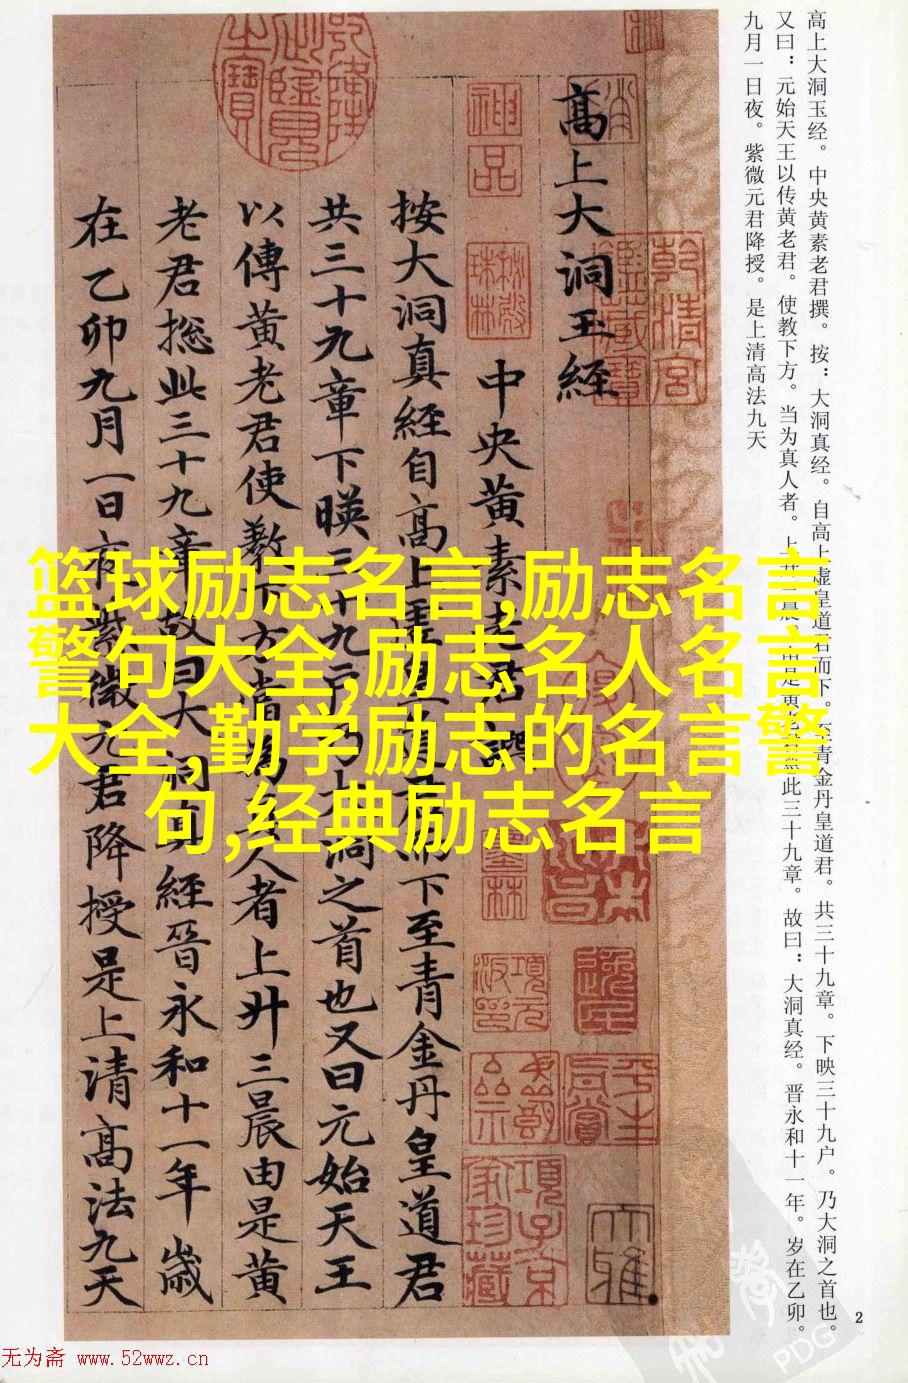 高上大洞玉经。中央黄素老君撰。按：大洞真经。自高上虚皇道君而下。至青金丹皇道君。共三十九章。下映三十九户。乃大洞之首也。
又曰：元始天王以传黄老君。使教下方。当为真人者。上升三晨。由是黄老君总此三十九章。故曰：大洞真经。晋永和十一年。岁在乙卯。
九月一日夜。紫微元君降授。是上清高法九天
高上大洞玉經
中央黄素老君譔
按大洞真經自高上虛皇道君而下至青金丹皇道君
共三十九章下暎三十九户乃大洞之首也又曰元始天王
以傳黄老君使教下方當為真人者上升三晨由是黄
老君揔此三十九章故曰大洞真經晉永和十一年歲
在乙卯九月一日夜紫微元君降授是上清高法九天
神品
乾清宮鑑藏寶
墨林
項子京家珍藏
篮球励志名言,励志名言
警句大全,励志名人名言
大全,勤学励志的名言警
句,经典励志名言
2
PDG
无为斋 www.52wwz.cn